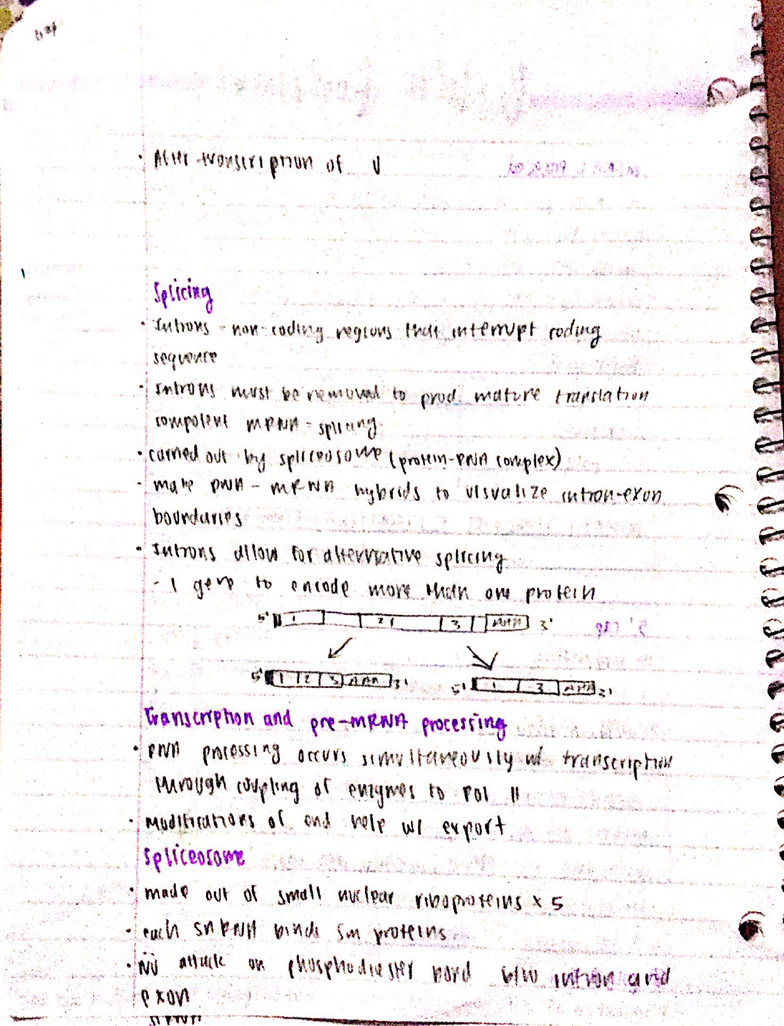 • After transcription of
Splicing
• Introns - non-coding regions that interrupt coding
sequence
• Introns must be removed to prod. mature translation
compotent mRNA - splicing
• carried out by spliceosome (protein-RNA complex)
- make DNA - mRNA hybrids to visualize intron-exon
boundaries
• Introns allow for alternative splicing
- 1 gene to encode more than one protein
5' 1 2 3 AAA 3'
5' 1 2 3 AAA 3' 5' 1 3 AAA 3'
Transcription and pre-mRNA processing
• RNA processing occurs simultaneously w/ transcription
through coupling of enzymes to Pol II
• modifications of end help w/ export
Spliceosome
• made out of small nuclear riboproteins x 5
• each snRNA binds Sm proteins
• Nu attack on phosphodiester bond b/w intron and
exon